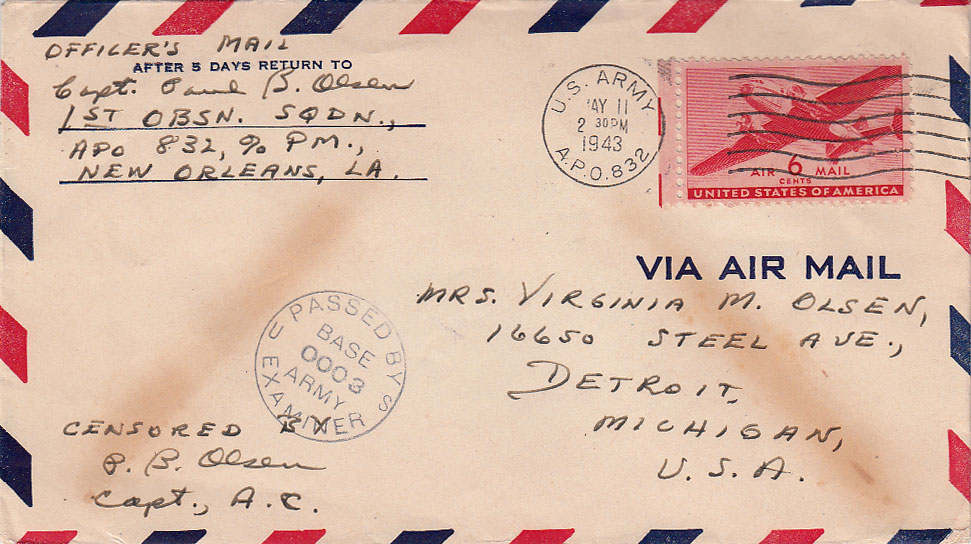 OFFICER'S MAIL
AFTER 5 DAYS RETURN TO
Capt. Paul B. Olsen
1ST OBSN. SQDN.,
APO 832, % PM.,
NEW ORLEANS, LA.
U.S. ARMY
MAY 11
2 30PM
1943
A.P.O. 832
AIR 6 MAIL
CENTS
UNITED STATES OF AMERICA
VIA AIR MAIL
MRS. VIRGINIA M. OLSEN,
16650 STEEL AVE.,
DETROIT,
MICHIGAN,
U.S.A.
PASSED BY
U S
BASE
0003
ARMY
EXAMINER
CENSORED BY
P. B. Olsen
Capt., A.C.